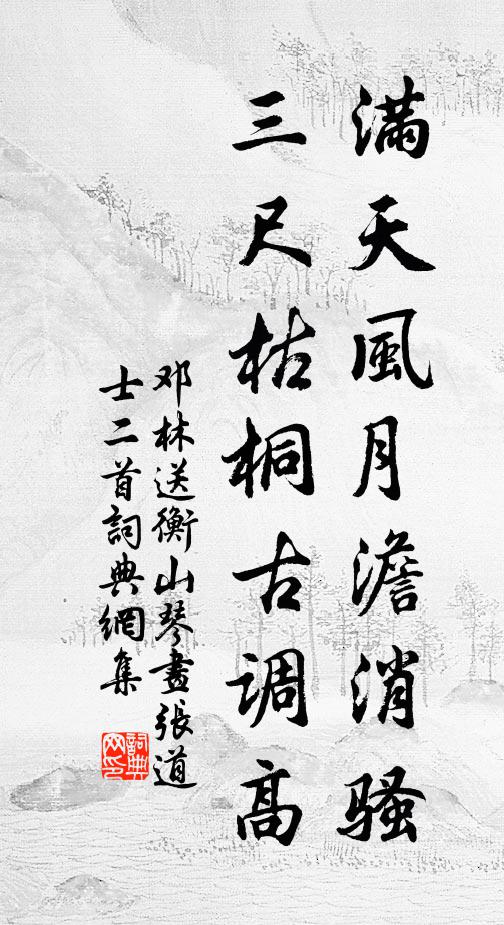 满天風月澹消骚
三尺枯桐古调高
邓林送衡山琴畫張道
士二首詞典網集
詞典
网印